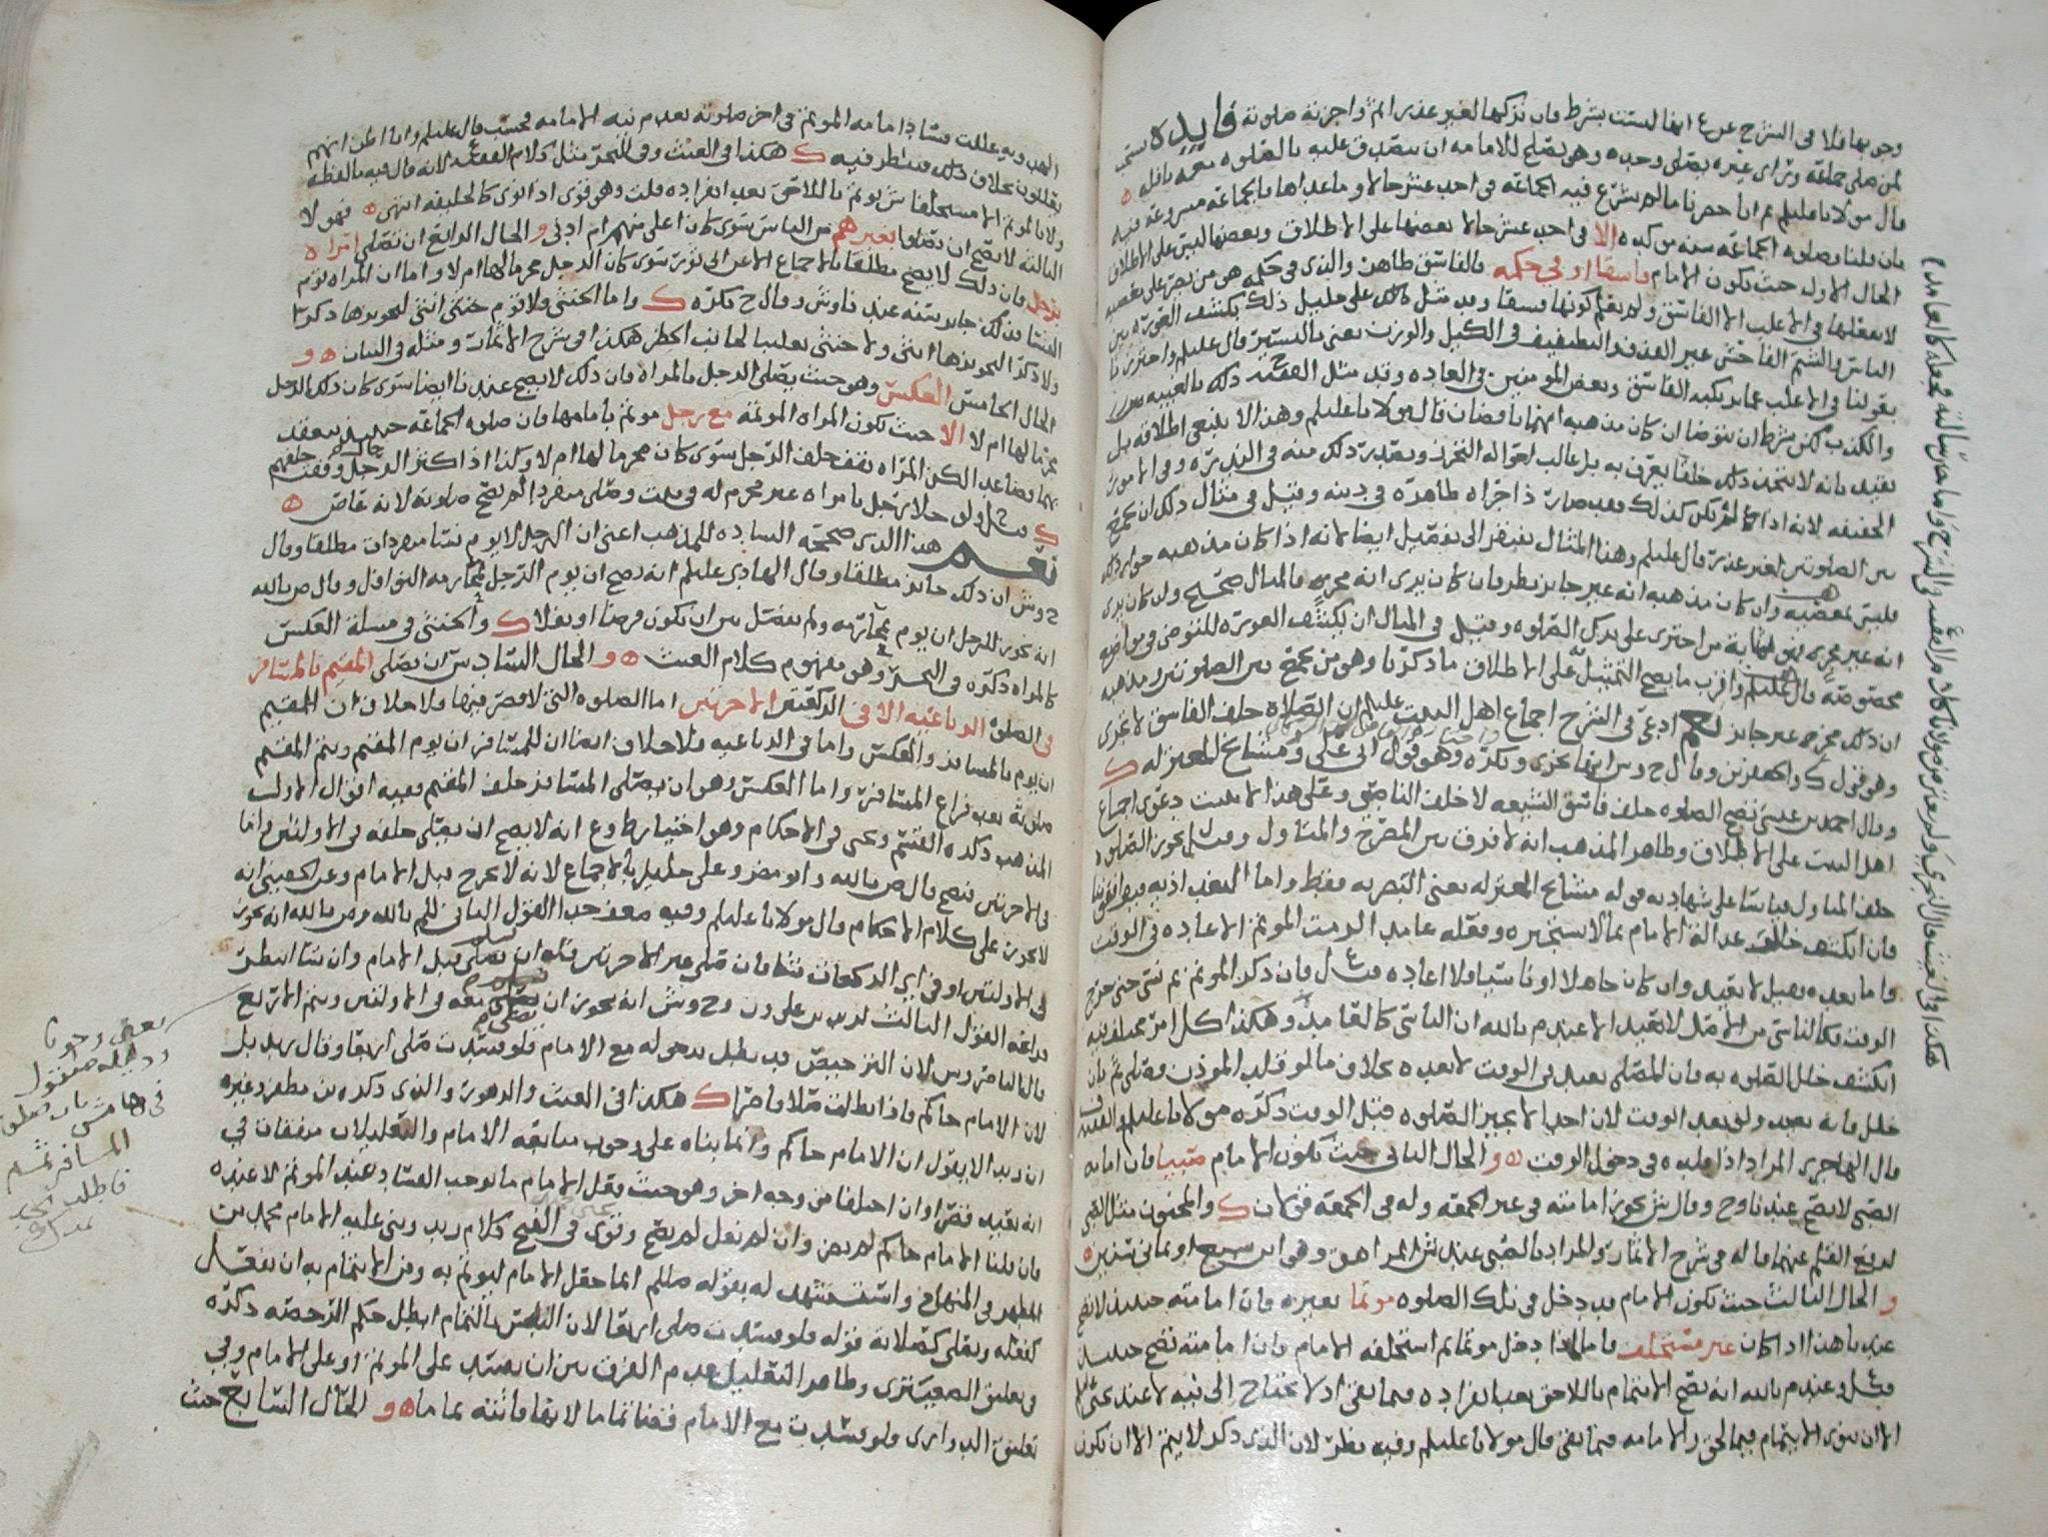 وجوبها فلا في الشرح عن ع انها ليست بشرط فان تركها لغير عذر اثم واجزته صلوته فايده يستحب
لمن صلى جماعة ورأى غيره يصلي وحده وهو يصلح للامامه ان يتصدق عليه بالصلوه معه نافله
قال مولانا عليلم ثم انا حصرنا ما لم يشرع فيه الجماعه في احد عشر حالا وما عداها فالجماعه مشروعة فيه
فان قلنا وصلوه الجماعه سنه مؤكده الا في احد عشر حالا بعضها على الاطلاق وبعضها ليس على الاطلاق
الحال الاول حيث يكون الامام فاسقا او في حكمه فالفاسق ظاهر والذي في حكمه هو من يصر على معصيه
لا يفعلها في الاغلب الا الفاسق ولم يعلم كونها فسقا وقد مثل ذلك علي خليل ذلك بكشف العوره بين
الناس والشتم الفاحش غير القذف والتطفيف في الكيل والوزن يعني باليسير قال عليلم واحترزنا
بقولنا في الاغلب عما يرتكبه الفاسق وبعض المومنين في العاده وقد مثل الفقيه ح ذلك بالغيبه
والكذب لكن بشرط ان يتوضا ان كان مذهبه انهما ناقضان قال مولانا عليلم وهذا لا ينبغي اطلاقه بل
يقيد بانه لا يتخذ ذلك خلقا يعرف به بل غالب احواله التحرز ويقدر ذلك منه في الندره وفي الامور
الحقيقه لانه اذا لم يكن كذلك فقد صارت ذا جراه ظاهره في دينه وقيل في مثال ذلك ان يجمع
بين الصلوتين لغير عذر قال عليلم وهذا المثال يفتقر الى تفصيل ايضا لانه اذا كان مذهبه جواز ذلك
فليس بمعصيه وان كان مذهبه انه غير جايز نظر فان كان يرى انه مجزي فالمثال صحيح وان كان يرى
انه غير مجزي فهو بمثابة من اجترى على ترك الصلوه وقيل في المثال ان يكشف العوره للتوضي في مواضع
مخصوصه قال عليلم واقرب ما يصح التمثيل على الاطلاق ما ذكرنا وهو من يجمع بين الصلوتين ومذهبه
ان ذلك مجز غير جايز نعم ادعى في الشرح اجماع اهل البيت عليلم ان الصلاه خلف الفاسق لا تجزي
وهو قول ك والجعفرين وقال ح وش انها تجزي وتكره وهو قول ابي علي ومشايخ المعتزله ك
وقال احمد بن عيسى تصح الصلوه خلف فاسق الشيعه لا خلف الناصبي وعلى هذا لا يثبت دعوى اجماع
اهل البيت على الاطلاق وظاهر المذهب انه لا فرق بين المصرح والمتاول وقيل تجوز الصلوه
خلف المتاول قياسا على شهادته قوله مشايخ المعتزله يعني البصريه فقط واما البغداديه فيوافقونا
فان انكشف خلاف عدالة الامام بما لا يستخيره وفعله عامد الومت الموتم الاعاده في الوقت
واما بعده فقيل لا يعيد وان كان جاهلا او ناسيا فلا اعاده قيل ع فان ذكر الموتم ثم نسي حتى خرج
الوقت فكالناسي من الاصل لا يعيد الا عند م بالله ان الناسي كالعامد وهكذا كل امر مختلف فيه
انكشف خلل الصلوه به فان المصلي يعيد في الوقت لا بعده بخلاف ما لو قلد الموذن وصلى ثم بان
خلل فانه يعيد ولو بعد الوقت لان احدا لا يجيز الصلوه قبل الوقت ذكره مولانا عليلم والفقيه ف
قال الهاجري المراد اذا قلده في دخول الوقت ه و الحال الثاني حيث يكون الامام صبيا فان امامه
الصبي لا تصح عندنا وح وقال ش تجوز امامته في غير الجمعه وله في الجمعه قولان ك والمجنون مثل الصبي
لرفع القلم عنهما قاله في شرح الاثمار والمراد بالصبي عند ش المراهق وهو ابن سبع او ثماني سنين ه
و الحال الثالث حيث يكون الامام قد دخل في تلك الصلوه موتما بغيره فان امامته حينئذ لا تصح
عندنا هذا اذا كان غير مستخلف فاما لو دخل موتما ثم استخلفه الامام فان امامته تصح حينئذ
قيل وعند م بالله انه يصح الائتمام باللاحق بعد انفراده فيما بقي اذ لا يحتاج الى نيه لا عند يحيى
الا ان ينوي الائتمام فيما لحق والامامه فيما بقي قال مولانا عليلم وفيه نظر لان الذي ذكر لا يتم الا ان يكون
هكذا في الغيث قال النجري ولم يعتبر مولانا كلام الفقيه والشرح واما جارساله فجعله كالعامد م
الهدويه عللت فساد امامه الموتم في اخر صلوته بعدم نيه الامامه فحسب قال عليلم وانا اظن انهم
يعللون بخلاف ذلك فينظر فيه ك هكذا في الغيث وفي البحر مثل كلام الفقيه لانه قال فيه بالفظه
ولا بالموتم الا مستخلفا ش يوتم باللاحق بعد انفراده قلت وهو قوي اذا نوى كالخليفه انتهى ه فهولا
الثالثه لا يصح ان يصلوا بغيرهم من الناس سوى كان اعلى منهم ام ادنى و الحال الرابع ان تصلي امراه
برجل فان ذلك لا يصح مطلقا بالاجماع الا عن ابي ثور سوى كان الرجل محرما لها ام لا واما ان المراه توم
النسا فذلك جايز سنه عندنا وش وقال ح تكره ك واما الخنثى فلا توم خنثى انثى لتجويزها ذكرا
ولا ذكر لتجويزها انثى ولا خنثى تغليبا لجانب الحظر هكذا في شرح الاثمار ومثله في البيان ه و
الحال الخامس العكس وهو حيث يصلي الرجل بالمراه فان ذلك لا يصح عندنا ايضا سوى كان ذلك الرجل
محرما لها ام لا الا حيث تكون المراه الموتمه مع رجل موتم بامامها فان صلوه الجماعه حينئذ تنعقد
بهما فصاعدا لكن المراه تقف خلف الرجل سوى كان محرما لها ام لا وكذا اذا كثر الرجال وقفت خلفهم
ك قيل ولو خلا رجل بامراه غير محرم له في بيت وصلى منفردا لم تصح صلوته لانه عاص ه
نعم هذا الذي صححه الساده للمذهب اعني ان الرجل لا يوم نسا منفردات مطلقا وقال
ح وش ان ذلك جايز مطلقا وقال الهادي عليلم انه يصح ان يوم الرجل بمحارمه النوافل وقال ص بالله
انه يجوز للرجل ان يوم بمحارمه ولم يفصل بين ان تكون فرضا او نفلا ك والخنثى في مسله العكس
كالمراه ذكره في البحر وهو مفهوم كلام الغيث ه و الحال السادس ان يصلي المقيم بالمسافر
في الصلوه الرباعيه الا في الركعتين الاخرتين اما الصلوه التي لا قصر فيها فلا خلاف ان المقيم
ان يوم بالمسافر والعكس واما في الرباعيه فلا خلاف ايضا ان للمسافر ان يوم المقيم ويتم المقيم
صلوته بعد فراغ المسافر واما العكس وهو ان يصلي المسافر خلف المقيم ففيه اقوال الاول
المذهب ذكره القسم ويحيى في الاحكام وهو اختيار ط وع انه لا يصح ان يصلي خلفه في الاولتين واما
في الاخرتين فتصح قال ص بالله وابو مضر وعلي خليل بالاجماع لانه لا يخرج قبل الامام وعن الحقيني انه
لا يجوز على كلام الاحكام قال مولانا عليلم وفيه ضعف جدا القول الثاني للم بالله وص بالله انه يجوز
في الاولتين وفي اي الركعات شا فان صلى غير الاخرتين فله ان يسلم قبل الامام وان شا انتظر
فراغه القول الثالث لزيد بن علي ون وح وش انه يجوز ان يصلي معه في الاولتين ويتم الاربع
قال الناصر وش لان الترخيص قد بطل بدخوله مع الامام فلو فسدت صلى اربعا وقال زيد بل
لان الامام حاكم فاذا بطلت صلا قاصرا ك هكذا في الغيث والزهور والذي ذكره بن مظفر وغيره
ان زيدا لا يقول ان الامام حاكم وانما بناه على وجوب متابعه الامام والتعليلان متفقان في
انه يعيد قصرا وان اختلفا من وجه اخر وهو حيث فعل الامام ما يوجب الفساد عند الموتم لا عنده
فان قلنا الامام حاكم لم يضر وان لم نقل لم تصح وقوى في الفتح كلام زيد وبنى عليه الامام محمد بن
المطهر في المنهاج واستشهد له بقوله صللم انما جعل الامام ليوتم به ومن الائتمام به ان يفعل
كفعله ويصلي كصلاته قوله فلو فسدت صلى اربعا لان التلبس بالتمام ابطل حكم الرخصه ذكره
في تعليق الصعيتري وظاهر التعليل عدم الفرق بين ان تفسد على الموتم او على الامام وفي
تعليق الدواري ولو فسدت مع الامام فقضا تماما لانها فائته تماما ه و الحال السابع حيث
يعني وجوبا
ودليله منقول
في هامش بان فعلت
المسافر ثم
فاطلبه تجد